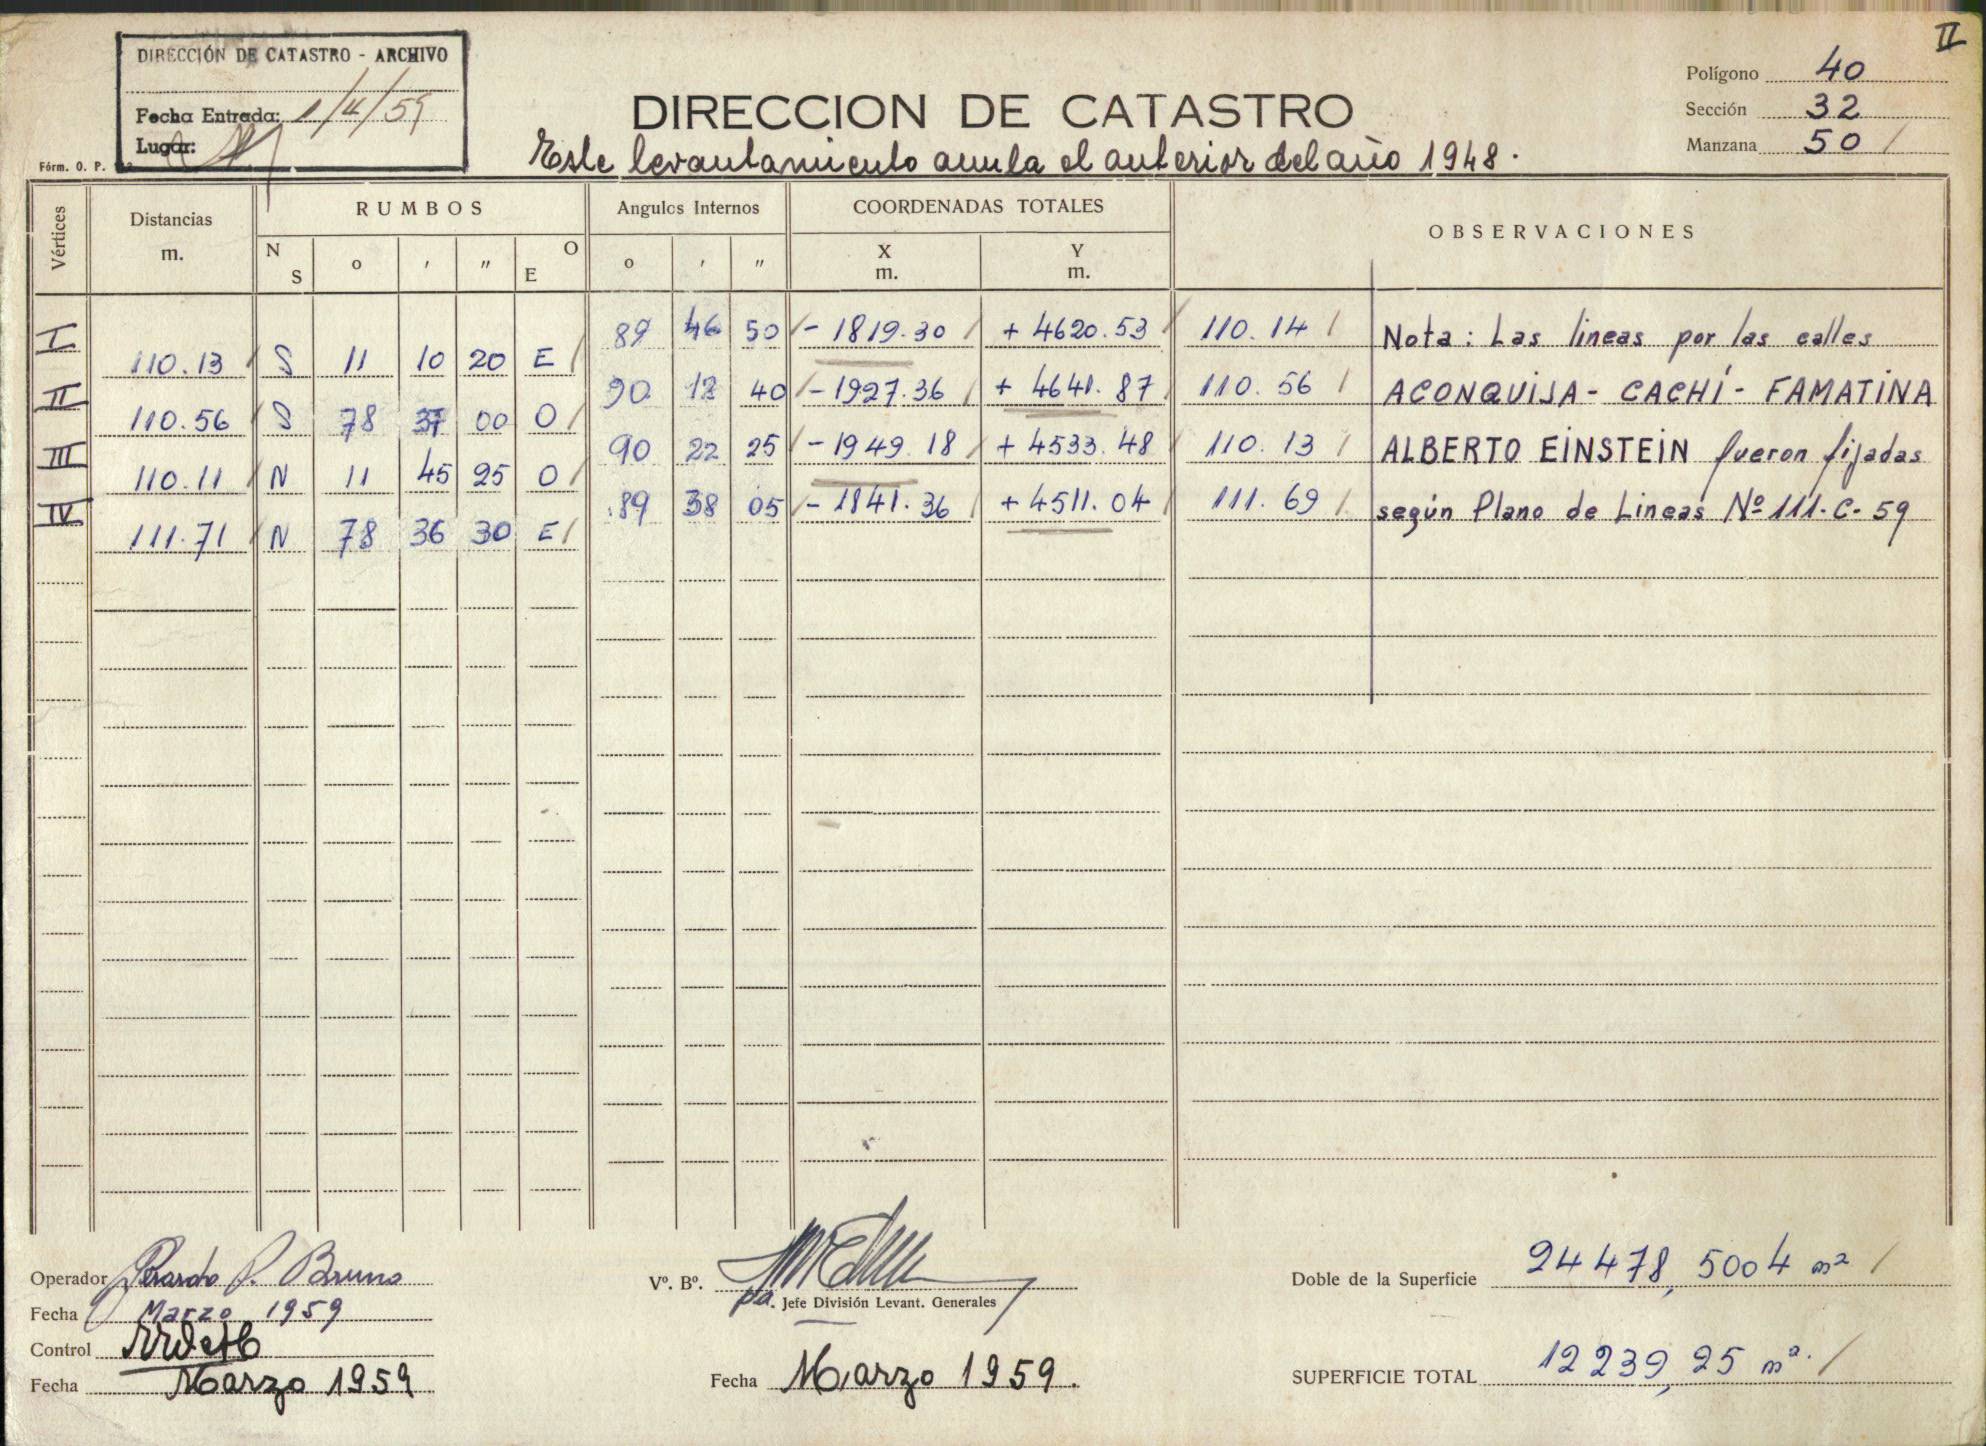 II
DIRECCIÓN DE CATASTRO - ARCHIVO
Fecha Entrada: 1/4/59
Lugar:
Fórm. O. P.
DIRECCION DE CATASTRO
Este levantamiento anula el anterior del año 1948.
Polígono 40
Sección 32
Manzana 50 /
Vértices Distancias m. RUMBOS Angulos Internos COORDENADAS TOTALES OBSERVACIONES
N S o ' " O E o ' " X m. Y m.
I 89 46 50 / - 1819.30 / + 4620.53 / 110.14 / Nota: Las lineas por las calles
110.13 / S 11 10 20 E /
II 90 12 40 / - 1927.36 / + 4641.87 / 110.56 / ACONQUIJA - CACHÍ - FAMATINA
110.56 / S 78 37 00 O /
III 90 22 25 / - 1949.18 / + 4533.48 / 110.13 / ALBERTO EINSTEIN fueron fijadas
110.11 / N 11 45 25 O /
IV 89 38 05 / - 1841.36 / + 4511.04 / 111.69 / según Plano de Lineas Nº 111-C-59
111.71 / N 78 36 30 E /
Operador Gerardo P. Bruno
Fecha Marzo 1959
Control
Fecha Marzo 1959
Vº. Bº.
pa. Jefe División Levant. Generales
Fecha Marzo 1959.
Doble de la Superficie 24478,5004 m² /
SUPERFICIE TOTAL 12239,25 m². /